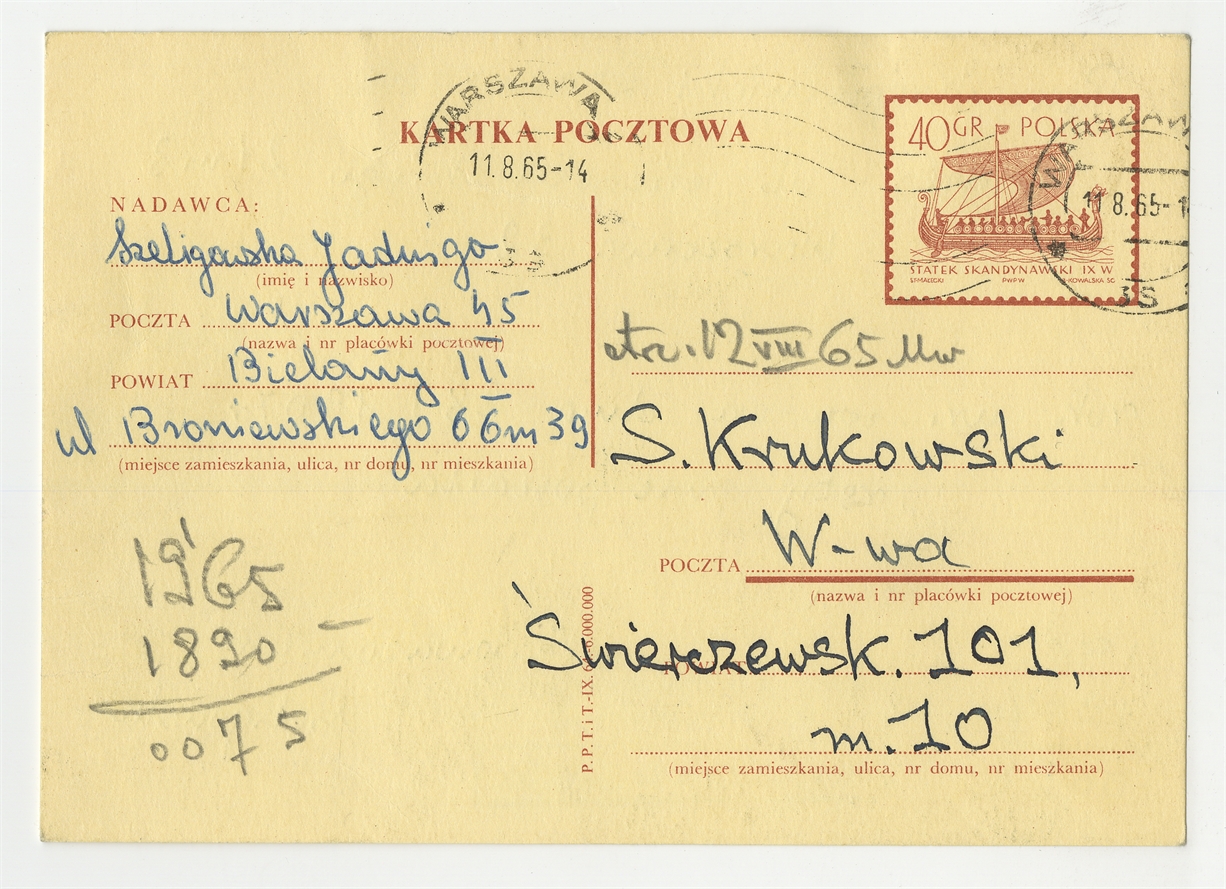 WARSZAWA
KARTKA POCZTOWA
11.8.65-14
40 GR POLSKA
WARSZAWA
11 8.65-1
STATEK SKANDYNAWSKI IX W
S.MAŁECKI PWPW KOWALSKA SC.
NADAWCA:
Szeligowska Jadwiga
(imię i nazwisko)
POCZTA Warszawa 45
(nazwa i nr placówki pocztowej)
POWIAT Bielany III
ul Broniewskiego 66 m 39
(miejsce zamieszkania, ulica, nr domu, nr mieszkania)
otrz. 12 VIII 65
S. Krukowski
POCZTA W-wa
(nazwa i nr placówki pocztowej)
POWIAT
Świerczewsk. 101,
m. 10
(miejsce zamieszkania, ulica, nr domu, nr mieszkania)
P. P. T. i T.-IX. 6.000.000
1965
1890 –
0075